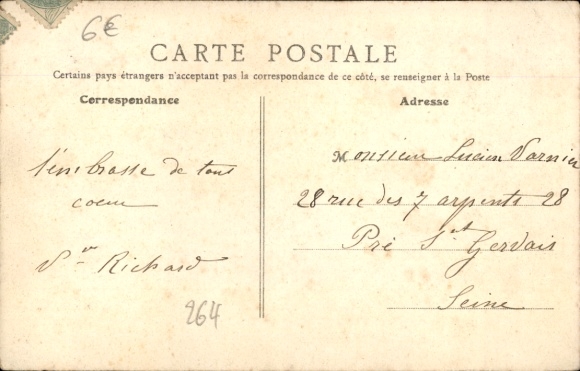 6€
CARTE POSTALE
Certains pays étrangers n'acceptant pas la correspondance de ce côté, se renseigner à la Poste
Correspondance
t'embrasse de tout
coeur
Vve Richard
264
Adresse
Monsieur Lucien Varnier
28 rue des 7 arpents 28
Pré St Gervais
Seine